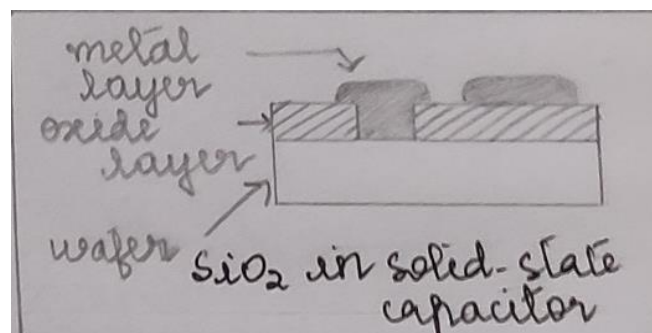 metal
layer
oxide
layer
wafer
SiO₂ in solid-state
capacitor